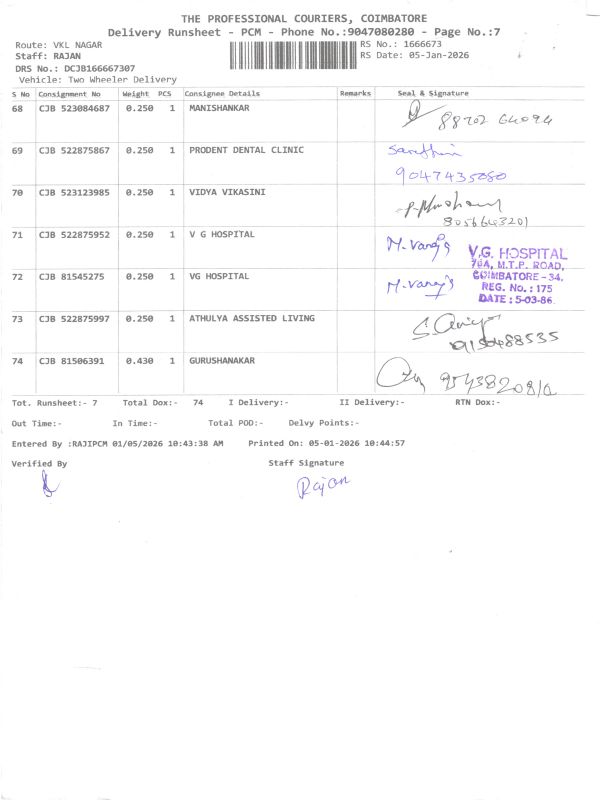 THE PROFESSIONAL COURIERS, COIMBATORE
Delivery Runsheet - PCM - Phone No.:9047080280 - Page No.:7
Route: VKL NAGAR RS No.: 1666673
Staff: RAJAN RS Date: 05-Jan-2026
DRS No.: DCJB166667307
Vehicle: Two Wheeler Delivery
S No Consignment No Weight PCS Consignee Details Remarks Seal & Signature
68 CJB 523084687 0.250 1 MANISHANKAR
69 CJB 522875867 0.250 1 PRODENT DENTAL CLINIC
9047435080
70 CJB 523123985 0.250 1 VIDYA VIKASINI
8056643201
71 CJB 522875952 0.250 1 V G HOSPITAL
V.G. HOSPITAL
70A, M.T.P. ROAD,
COIMBATORE - 34.
REG. No.: 175
DATE : 5-03-86.
72 CJB 81545275 0.250 1 VG HOSPITAL
73 CJB 522875997 0.250 1 ATHULYA ASSISTED LIVING
9150488535
74 CJB 81506391 0.430 1 GURUSHANAKAR
Tot. Runsheet:- 7 Total Dox:- 74 I Delivery:- II Delivery:- RTN Dox:-
Out Time:- In Time:- Total POD:- Delvy Points:-
Entered By :RAJIPCM 01/05/2026 10:43:38 AM Printed On: 05-01-2026 10:44:57
Verified By Staff Signature
Rajan